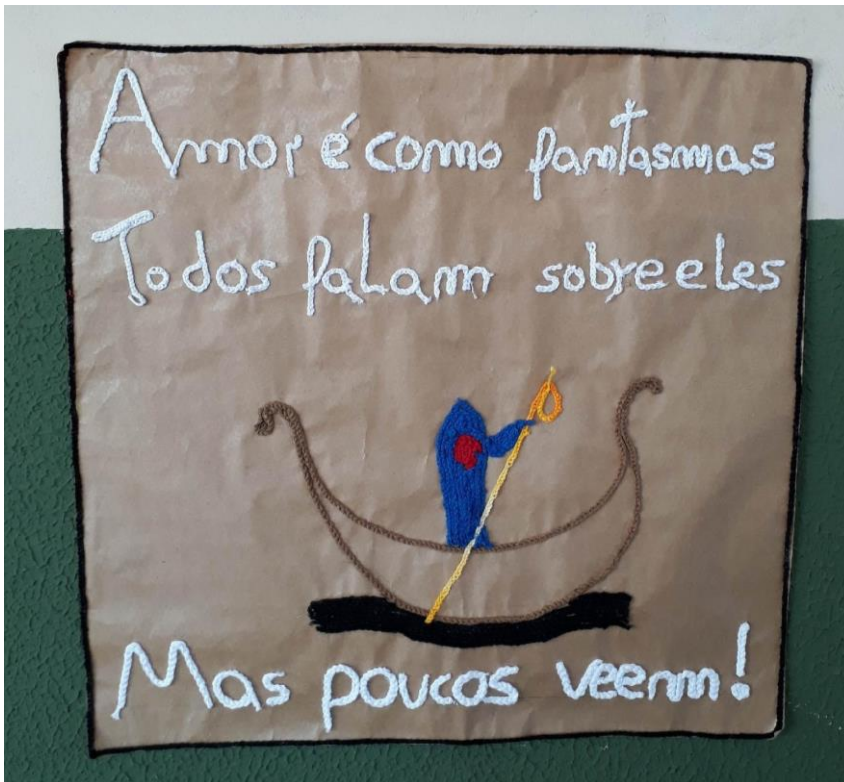 Amor é como fantasmas
Todos falam sobre eles
Mas poucos veem!